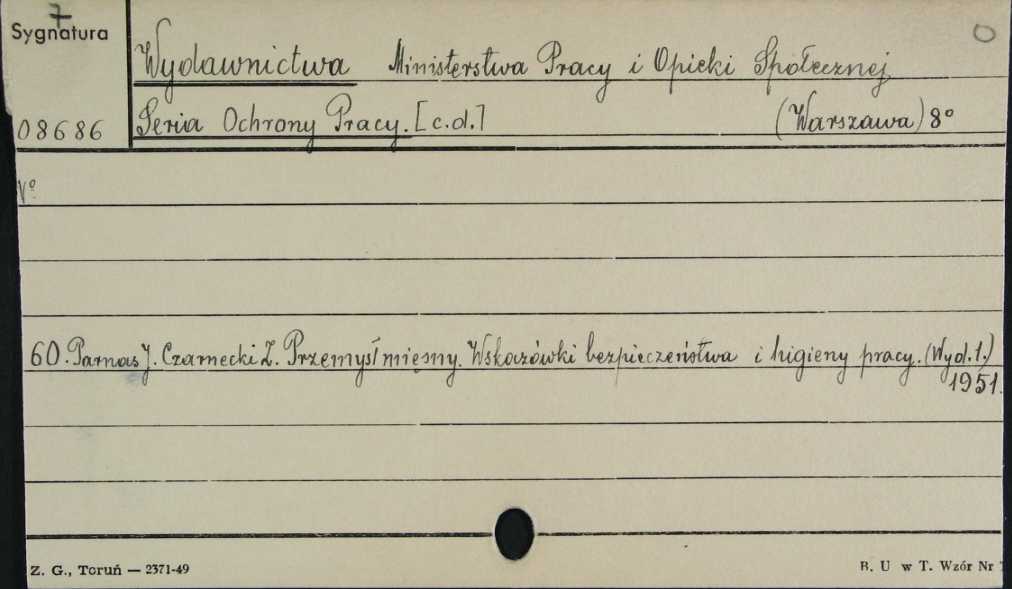 7
Sygnatura
O
Wydawnictwa Ministerstwa Pracy i Opieki Społecznej
08686
Seria Ochrony Pracy. [c.d.] (Warszawa) 8°
N°
60. Parnas J. Czarnecki Z. Przemysł mięsny. Wskazówki bezpieczeństwa i higieny pracy. (Wyd. 1.)
1951.
Z. G., Toruń — 2371-49
B. U w T. Wzór Nr